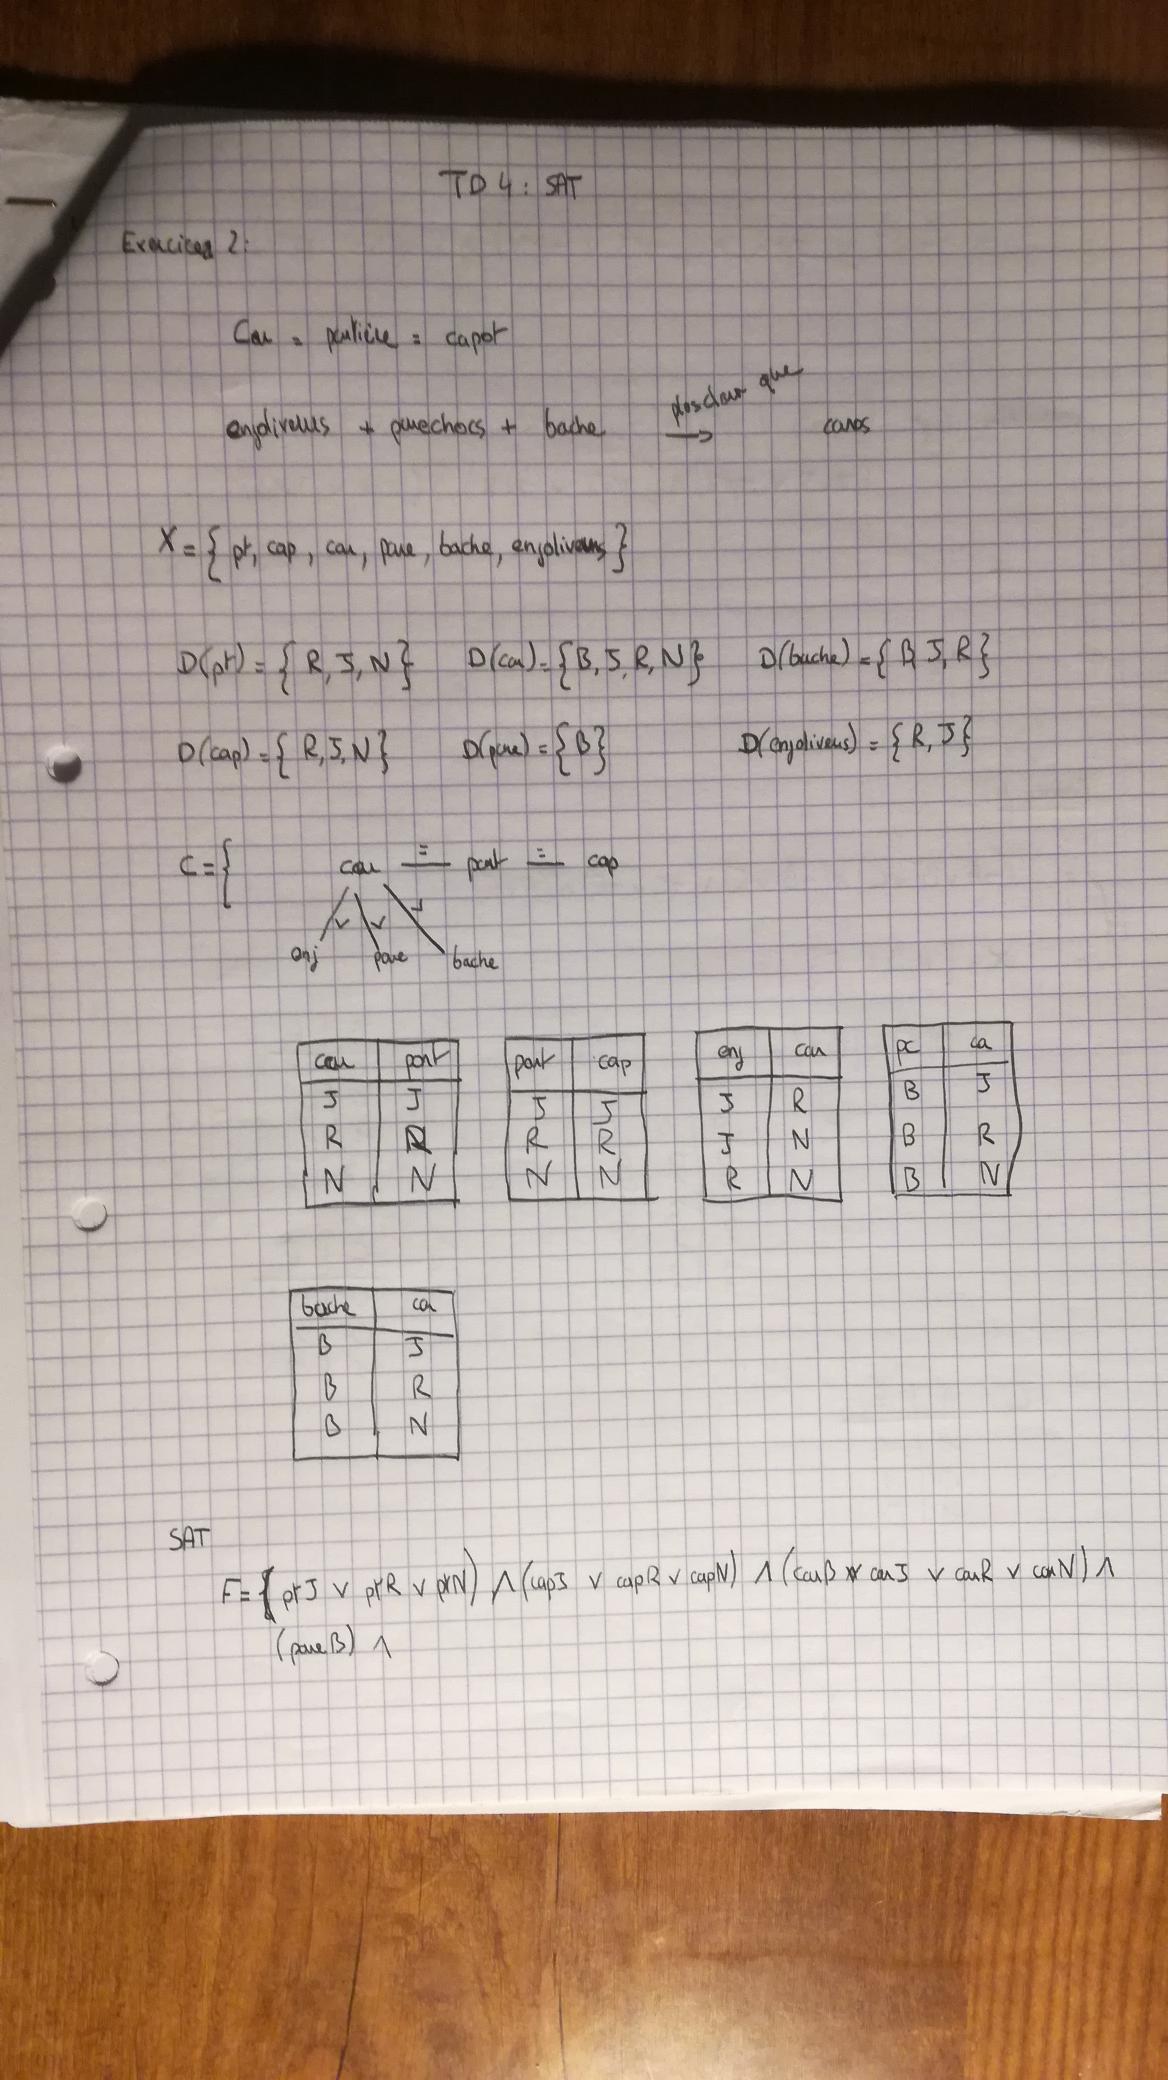 TD 4 : SAT
Exercices 2:
Car = portière = capot
enjoliveurs + parechocs + bache → plus clair que caros
X = { pt, cap, car, pare, bache, enjoliveurs }
D(pt) = { R, J, N } D(car) = { B, J, R, N } D(bache) = { B, J, R }
D(cap) = { R, J, N } D(pare) = { B } D(enjoliveurs) = { R, J }
C = { car = port = cap
enj pare bache
car port port cap enj car pc ca
J J J J J R B J
R R R R J N B R
N N N N R N B N
bache ca
B J
B R
B N
SAT
F = { ptJ ∨ ptR ∨ ptN) ∧ (capJ ∨ capR ∨ capN) ∧ (carB ∨ carJ ∨ carR ∨ carN) ∧
(pareB) ∧